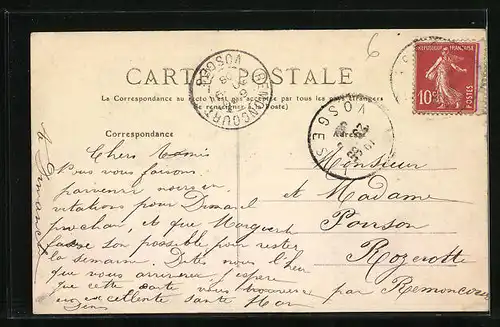 CARTE POSTALE
La Correspondance au recto n'est pas acceptée par tous les pays étrangers
(Se renseigner à la Poste)
REPUBLIQUE FRANÇAISE
10 c
POSTES
REMONCOURT
VOSGES
VOSGES
Correspondance
Chers Amis
Nous vous faisons
parvenir nos in
vitations pour Dimanche
prochain, et que Marguerite
fasse son possible pour rester
la semaine. Dites nous l'heure
que vous arriverez. J'espère
que cette carte vous trouvera
en excellente santé
Monsieur
et Madame
Ponson
Rozerotte
par Remoncourt